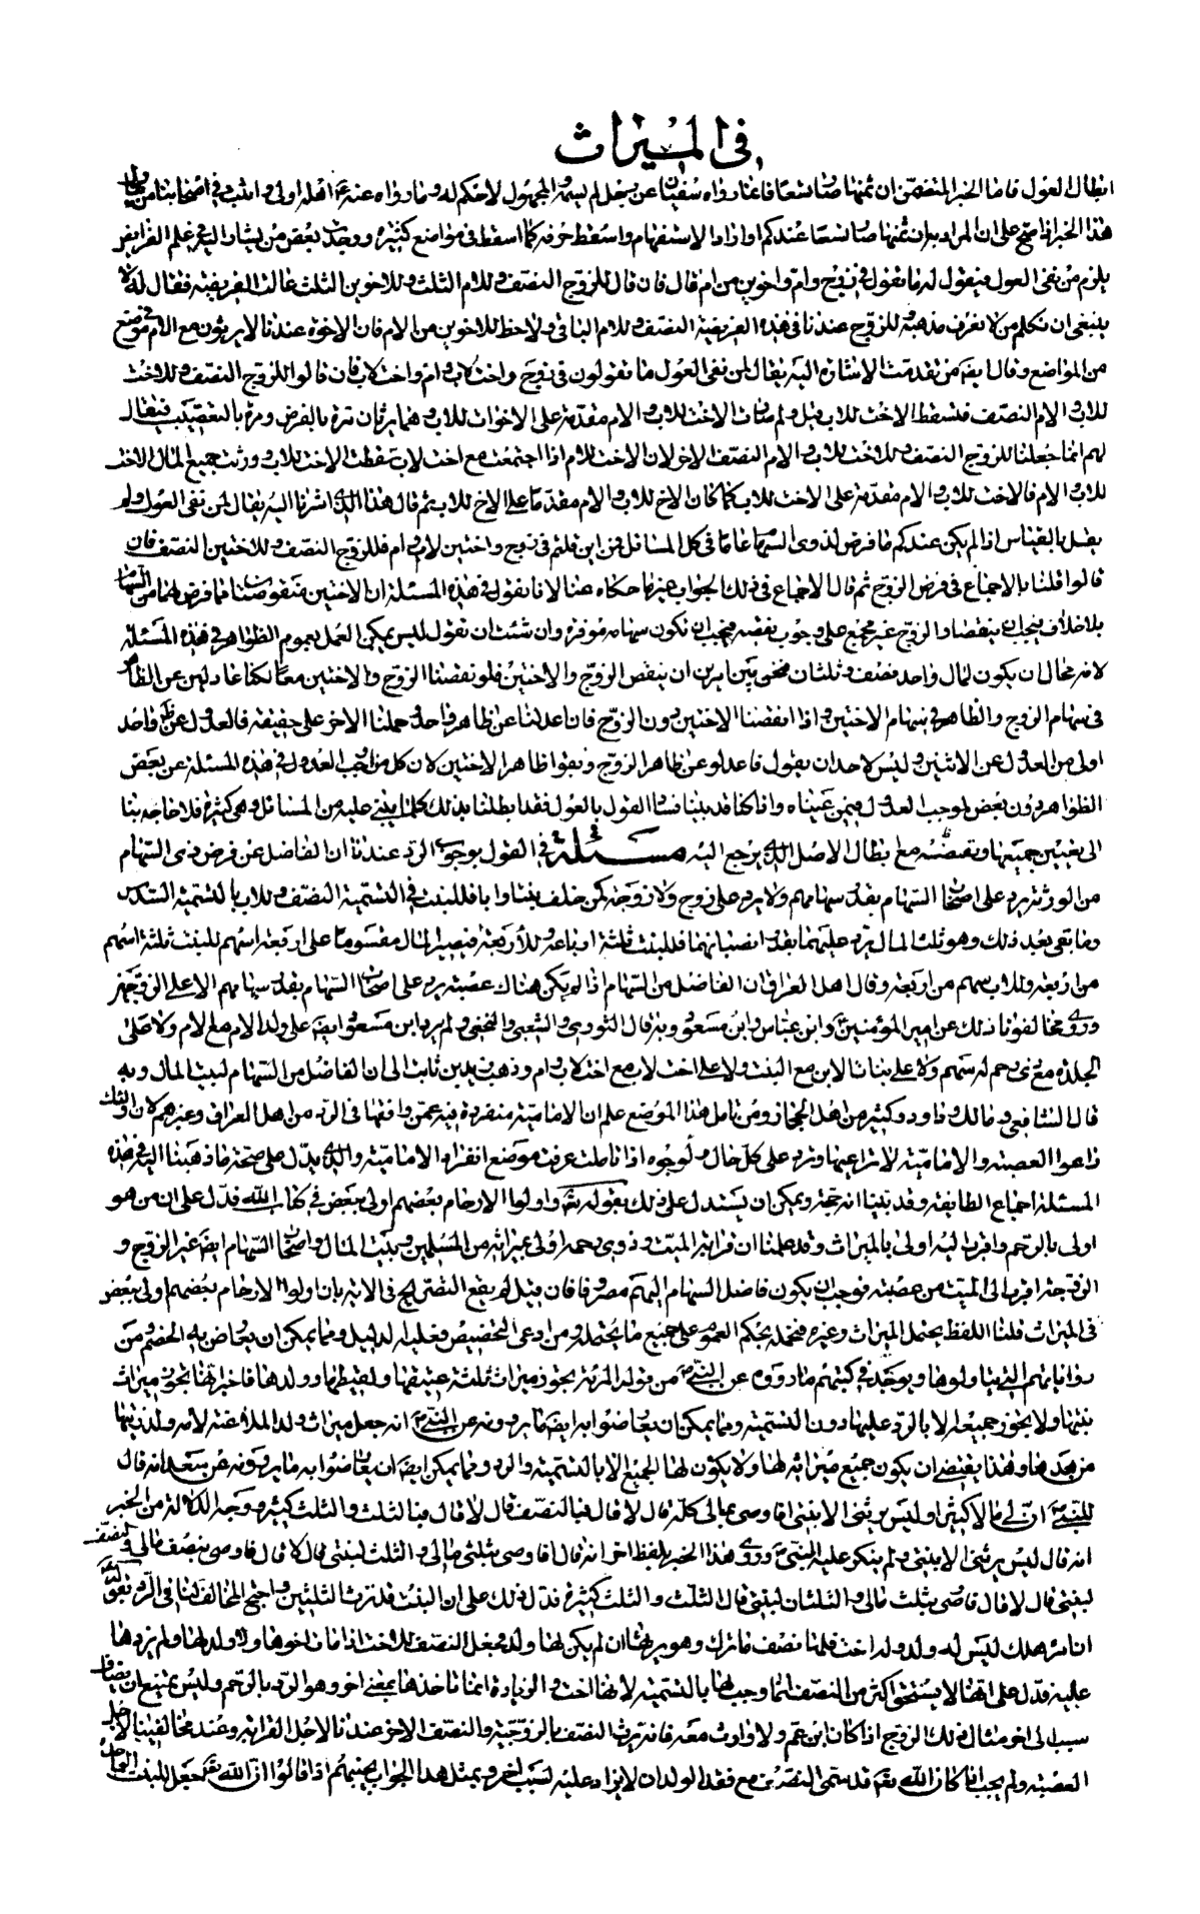 في الميراث
ابطال العول فاما الخبر المتضمن ان ثمنها صار تسعا فانما رواه سفيان عن رجل لم يسمه والمجهول لا حكم له وما رواه عنه ع اهله اولى واثبت وفي اصحابنا من يتاول
هذا الخبر اذا صح على ان المراد به ان ثمنها صار تسعا عندكم او اراد الاستفهام واسقط حرفه كما اسقط في مواضع كثيرة ووجدت بعض من يشار اليه في علم الفرايض
يلزم من نفى العول فيقول له ما تقول في زوج وام واخوين من ام قال فان قال للزوج النصف وللام الثلث وللاخوين الثلث عالت الفريضة فقال له
ينبغي ان تكلم من لا تعرف مذهبه للزوج عندنا في هذه الفريضة النصف وللام الباقي ولا حظ للاخوين من الام فان الاخوة عندنا لا يرثون مع الام في موضع
من المواضع وقال ايضا من تقدمت الاشارة اليه يقال لمن نفى العول ما تقولون في زوج واخت لاب وام واخت لاب فان قالوا للزوج النصف وللاخت
للاب والام النصف فتسقط الاخت للاب قيل ولم صارت الاخت للاب والام مقدمة على الاخوات للاب وهما يرثان مرة بالفرض ومرة بالتعصيب فيقال
لهم انما جعلنا للزوج النصف وللاخت للاب والام النصف الاخر لان الاخت للام اذا اجتمعت مع اخت لاب سقطت الاخت للاب وورثت جميع المال الاخت
للاب والام فالاخت للاب والام مقدمة على الاخت للاب كما كان الاخ للاب والام مقدما على الاخ للاب ثم قال هذا الذي اشرنا اليه يقال لمن نفى العول ولم
يقل بالقياس اذا لم يكن عندكم ما فرض لذوي السهام عاما في كل المسائل فمن اين قلتم في زوج واختين لاب وام فللزوج النصف وللاختين النصف فان
قالوا قلنا بالاجماع في فرض الزوج ثم قال الاجماع في ذلك الجواب غير ما حكاه عنا لانا نقول في هذه المسئلة ان الاختين منقوصتان مما فرض لهما من السهام
بلا خلاف فيجب ان ينقصا والزوج غير مجمع على وجوب نقصه فيجب ان تكون سهامه موفرة وان شئت ان تقول ليس يمكن العمل بعموم الظواهر في هذه المسئلة
لانه محال ان يكون لمال واحد نصف وثلثان فنحن بين امرين ان ينقص الزوج والاختين فلو نقصنا الزوج والاختين معا لكنا عادلين عن الظاهر
في سهام الزوج والظاهر في سهام الاختين واذا انقصنا الاختين دون الزوج فانا عدلنا عن ظاهر واحد وحملنا الاخر على حقيقته فالعدول عن ظاهر واحد
اولى من العدول عن الاثنين وليس لاحد ان يقول فاعدلوا عن ظاهر الزوج وبقوا ظاهر الاختين لان كل من اوجب العدول في هذه المسئلة عن بعض
الظواهر دون بعض لم يوجب العدول فيمن عيناه واذا كنا قد بينا فساد القول بالعول فقد ابطلنا بذلك كلما ينبني عليه من المسائل وهي كثيرة فلا حاجة بنا
الى تعيين جميعها وتعضه مع ابطال الاصل الذي يرجع اليه مسئلة في القول بوجوب الرد عندنا ان الفاضل عن فرض ذوي السهام
من الورثة يرد على اصحاب السهام بقدر سهامهم ولا يرد على زوج ولا زوجة كمن خلف بنتا وابا فللبنت في التسمية النصف وللاب بالتسمية السدس
وما بقي بعد ذلك وهو ثلث المال يرد عليهما بقدر انصبائهما فللبنت ثلثة ارباعه وللاب ربعه فيصير المال مقسوما على اربعة اسهم للبنت ثلثة اسهم
من اربعة وللاب سهم من اربعة وقال اهل العراق ان الفاضل من السهام اذا لم يكن هناك عصبة يرد على اصحاب السهام بقدر سهامهم الا على الزوجين
وروى مخالفونا ذلك عن امير المؤمنين ع وابن عباس وابن مسعود وبه قال الثوري والشعبي والنخعي ولم يرد ابن مسعود ايضا على ولد الام مع الام ولا على
الجدة مع ذي رحم له سهم ولا على بنات الابن مع البنت ولا على اخت لاب مع اخت لاب وام وذهب زيد بن ثابت الى ان الفاضل من السهام لبيت المال وبه
قال الشافعي ومالك وداود وكثير من اهل الحجاز ومن تامل هذا الموضع علم ان الامامية منفردة فيه عمن وافقها في الرد من اهل العراق وغيرهم لان اولئك
راعوا العصبة والامامية لا تراعيها وترد على كل حال ولوجوه اذا تاملت عرفت موضع انفراد الامامية والذي يدل على صحة ما ذهبنا اليه في هذه
المسئلة اجماع الطايفة وقد بينا انه حجة ويمكن ان يستدل على ذلك بقوله تعالى واولوا الارحام بعضهم اولى ببعض في كتاب الله فدل على ان من هو
اولى بالرحم واقرب اليه اولى بالميراث وقد علمنا ان قرابة الميت وذوي رحمه اولى بميراثه من المسلمين وبيت المال واصحاب السهام ايضا غير الزوج و
الزوجة اقرب الى الميت من عصبته فوجب ان يكون فاضل السهام اليهم مصروفا فان قيل لم يقع التصريح في الاية بان اولوا الارحام بعضهم اولى ببعض
في الميراث قلنا اللفظ يحتمل الميراث وغيره فنحمله بحكم العموم على جميع ما يحتمله ومن ادعى التخصيص فعليه الدليل ومما يمكن ان يعارض به الخصوم من
رواياتهم التي يتداولوها ويوجد في كتبهم ما رووه عن النبي ص من قوله المرئة تحوز ميراث ثلثة عتيقها ولقيطها وولدها فاخبر انها تحوز ميراث
بنتها ولا تحوز جميعه الا بالرد عليها دون التسمية ومما يمكن ان يعارضوا به ايضا ما يروونه عن النبي ص انه جعل ميراث ولد الملاعنة لامه ولذريتها
من بعدها وهذا يقتضي ان يكون جميع ميراثه لها ولا يكون لها الجميع الا بالتسمية والرد ومما يمكن ايضا ان يعارضوا به ما يروونه عن سعد انه قال
للنبي ص ان لي مالا كثيرا وليس يرثني الا بنتي افاوصي بمالي كله قال لا قال فبالنصف قال لا قال فبالثلث قال الثلث والثلث كثير ووجه الدلالة من الخبر
انه قال ليس يرثني الا بنتي ولم ينكر عليه النبي ص وروى هذا الخبر بلفظ اخر انه قال افاوصي بثلثي مالي والثلث لبنتي قال لا قال فاوصي بنصف مالي والنصف
لبنتي قال لا قال فاوصي بثلث مالي والثلثان لبنتي قال الثلث والثلث كثير فدل ذلك على ان البنت قد ترث الثلثين واحتج المخالف لنا في الرد بقوله تعالى
ان امرء هلك ليس له ولد وله اخت فلها نصف ما ترك وهو يرثها ان لم يكن لها ولد فجعل النصف للاخت اذا مات اخوها ولا ولد لها ولم يردها
عليه فدل على انها لا يستحق اكثر من النصف انما وجب لها بالتسمية لانها اخت والزيادة انما تاخذها بمعنى اخر وهو الرد بالرحم وليس يمتنع ان ينضاف
سبب الى اخر ومثال ذلك الزوج اذا كان ابن عم ولا وارث معه فانه يرث النصف بالزوجية والنصف الاخر عندنا لاجل القرابة وعند مخالفينا لاجل
العصبة ولم يجب اذا كان الله تعالى قد سمى النصف مع فقد الولد ان لا يزاد عليه لسبب اخر وبمثل هذا الجواب نجيبهم اذا قالوا ان الله تعالى جعل للبنت الواحدة